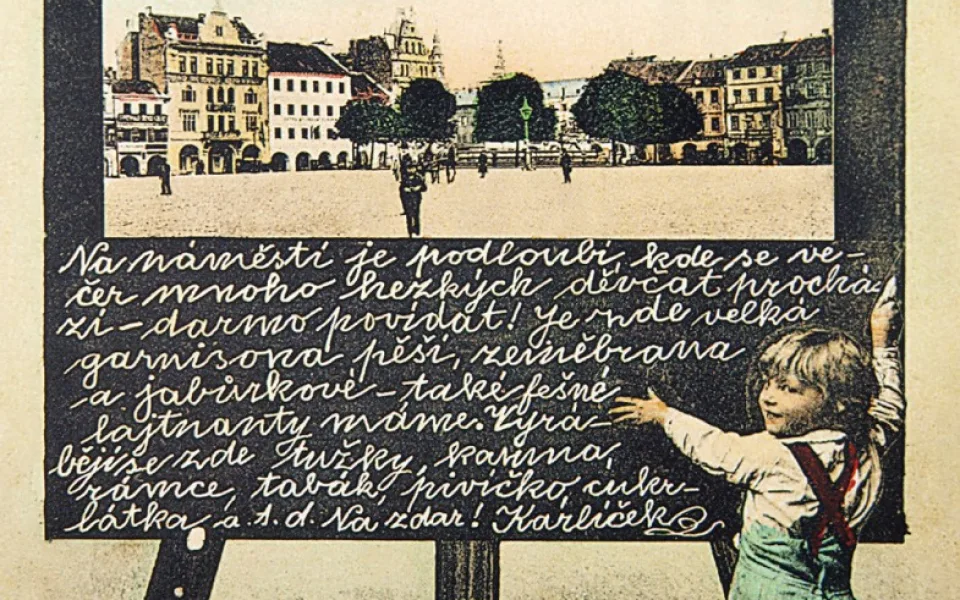 Na náměstí je podloubí, kde se ve-
čer mnoho hezkých děvčat prochá-
zí – darmo povídat! Je zde velká
garnisona pěší, zeměbrana
a jabůrkové – také fešné
lajtnanty máme. Vyrá-
bějí se zde tužky, kamna,
rámce, tabák, pivíčko, cukr-
látka a. t. d. Na zdar! Karlíček